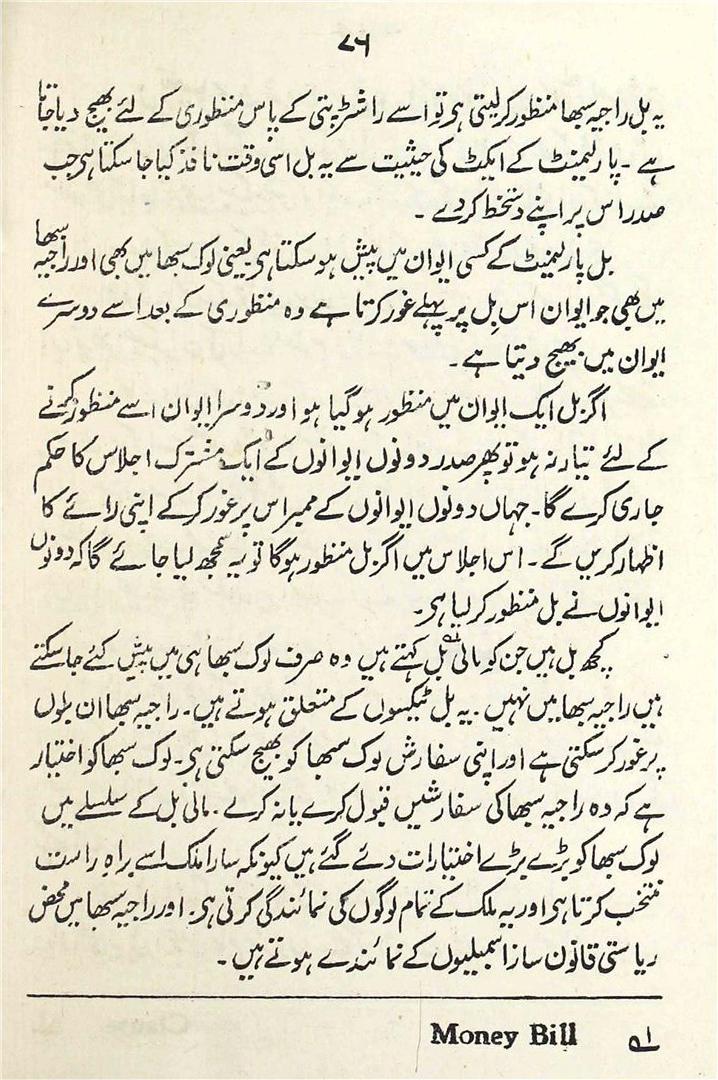 ۷۶
یہ بل راجیہ سبھا منظور کرلیتی ہی تو اسے راشٹرپتی کے پاس منظوری کے لئے بھیج دیا جاتا
ہے ۔ پارلیمنٹ کے ایکٹ کی حیثیت سے یہ بل اسی وقت نافذ کیا جا سکتا ہی جب
صدر اس پر اپنے دستخط کردے ۔
بل پارلیمنٹ کے کسی ایوان میں پیش ہو سکتا ہی یعنی لوک سبھا میں بھی اور راجیہ سبھا
میں بھی جو ایوان اس بِل پر پہلے غور کرتا ہے وہ منظوری کے بعد اسے دوسرے
ایوان میں بھیج دیتا ہے ۔
اگر بل ایک ایوان میں منظور ہو گیا ہو اور دوسرا ایوان اسے منظور کرنے
کے لئے تیار نہ ہو تو پھر صدر دونوں ایوانوں کے ایک مشترک اجلاس کا حکم
جاری کرے گا ۔ جہاں دونوں ایوانوں کے ممبر اس پر غور کرکے اپنی رائے کا
اظہار کریں گے ۔ اس اجلاس میں اگر بل منظور ہوگا تو یہ سمجھ لیا جائے گا کہ دونوں
ایوانوں نے بل منظور کر لیا ہی ۔
کچھ بل ہیں جن کو مالی بل۱ کہتے ہیں وہ صرف لوک سبھا ہی میں پیش کئے جا سکتے
ہیں راجیہ سبھا میں نہیں ۔ یہ بل ٹیکسوں کے متعلق ہوتے ہیں ۔ راجیہ سبھا ان بلوں
پر غور کر سکتی ہے اور اپنی سفارش لوک سبھا کو بھیج سکتی ہی ۔ لوک سبھا کو اختیار
ہے کہ وہ راجیہ سبھا کی سفارشیں قبول کرے یا نہ کرے ۔ مالی بل کے سلسلے میں
لوک سبھا کو بڑے بڑے اختیارات دئے گئے ہیں کیونکہ سارا ملک اسے براہِ راست
منتخب کرتا ہی اور یہ ملک کے تمام لوگوں کی نمائندگی کرتی ہی ۔ اور راجیہ سبھا میں محض
ریاستی قانون ساز اسمبلیوں کے نمائندے ہوتے ہیں ۔
۱ Money Bill